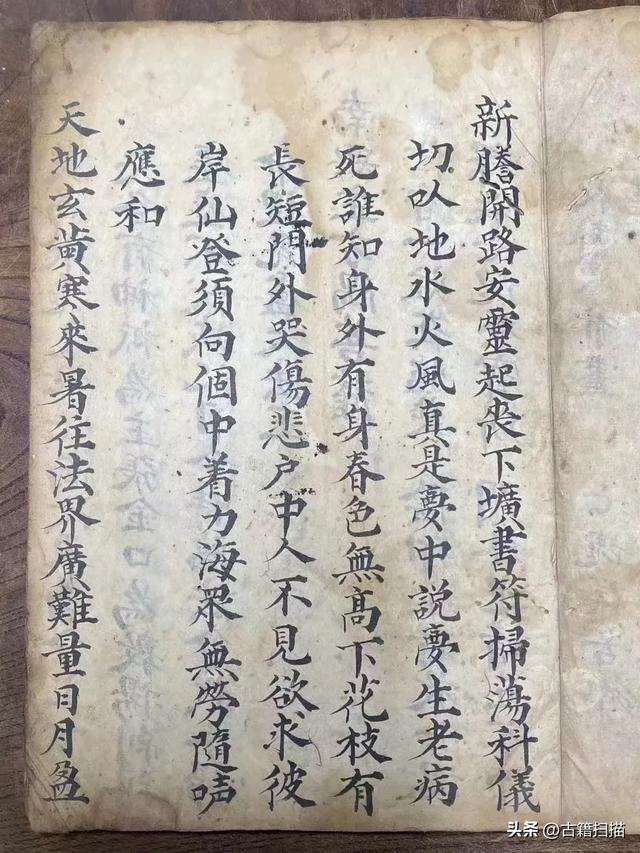 新謄開路安靈起喪下壙書符掃蕩科儀
切以地水火風真是夢中說夢生老病
死誰知身外有身春色無髙下花枝有
長短門外哭傷悲户中人不見欲求彼
岸仙登須向個中着力海眾無勞隨聲
應和
天地玄黃寒來暑往法界廣難量日月盈
头条 @古籍扫描